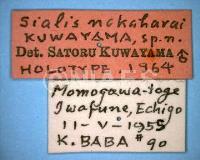 Sialis nakaharai
KUWAYAMA, sp. n.
Det. SATORU KUWAYAMA ♂
HOLOTYPE 1964
Momogawa-toge
Iwafune, Echigo
11-V-1955
K. BABA #90